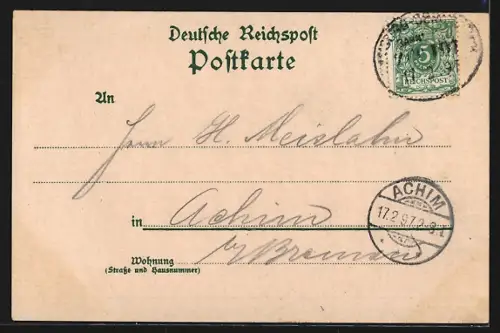 Deutsche Reichspost
Postkarte
5
REICHSPOST
An
Herrn H. Meislahn
in Achim
b/ Bremen
ACHIM
17.2.97.
Wohnung
(Straße und Hausnummer)